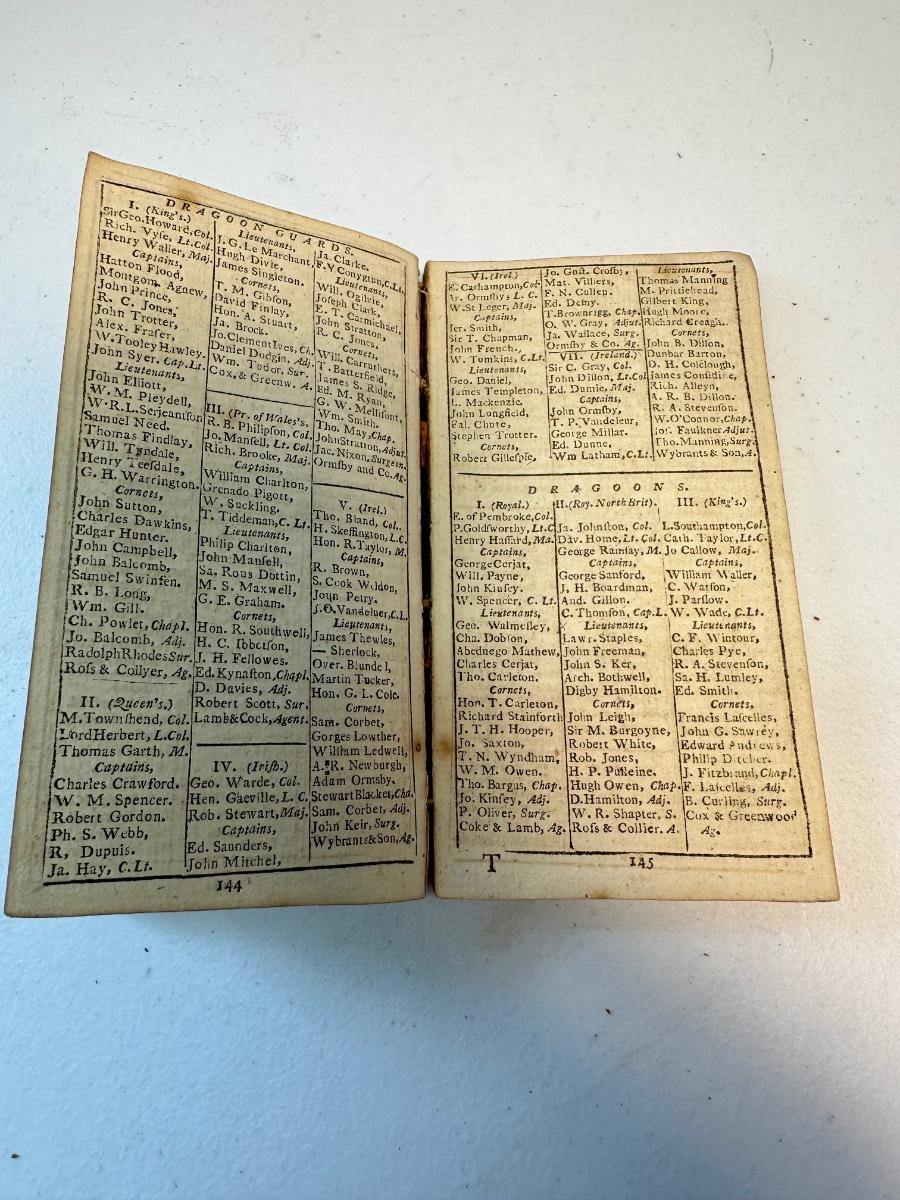 DRAGOON GUARDS.
I. (King's.)
Sir Geo. Howard, Col.
Rich. Vyſe, Lt. Col.
Henry Waller, Maj.
Captains,
Hatton Flood,
Montgom. Agnew,
John Prince,
R. C. Jones,
John Trotter,
Alex. Fraſer,
W. Tooley Hawley.
John Syer. Cap. Lt.
Lieutenants,
John Elliott,
W. M. Pleydell,
W. R. L. Serjeantſon
Samuel Need.
Thomas Findlay.
Will. Tyndale,
Henry Teeſdale,
G. H. Warrington.
Cornets,
John Sutton,
Charles Dawkins,
Edgar Hunter.
John Campbell,
John Balcomb,
Samuel Swinfen.
R. B. Long,
Wm. Gill.
Ch. Powlet, Chapl.
Jo. Balcomb, Adj.
Radolph Rhodes Sur.
Roſs & Collyer, Ag.
II. (Queen's.)
M. Townſhend, Col.
Lord Herbert, L. Col.
Thomas Garth, M.
Captains,
Charles Crawford.
W. M. Spencer.
Robert Gordon.
Ph. S. Webb,
R, Dupuis.
Ja. Hay, C. Lt.
Lieutenants,
J. G. Le Marchant,
Hugh Divie,
James Singleton.
Cornets,
T. M. Gibſon,
David Finlay,
Hon. A. Stuart,
Ja. Brock.
Jo. Clement Ives, Ch.
Daniel Dodgin, Adj.
Wm. Tudor, Sur.
Cox, & Greenw. A.
III. (Pr. of Wales's.
R. B. Philipſon, Col.
Jo. Manſell, Lt. Col.
Rich. Brooke, Maj.
Captains,
William Charlton,
Grenado Pigott,
W. Suckling.
T. Tiddeman, C. Lt.
Lieutenants,
Philip Charlton,
John Manſell,
Sa. Rous Dottin,
M. S. Maxwell,
G. E. Graham.
Cornets,
Hon. R. Southwell,
H. C. Ibbetſon,
J. H. Fellowes.
Ed. Kynaſton, Chapl.
D. Davies, Adj.
Robert Scott, Sur.
Lamb & Cock, Agent.
IV. (Iriſh.)
Geo. Warde, Col.
Hen. Gaeville, L. C.
Rob. Stewart, Maj.
Captains,
Ed. Saunders,
John Mitchel,
Ja. Clarke.
F. V. Conygton, C. Lt.
Lieutenants,
Will. Ogilvie,
Joſeph Clark,
E. T. Carmichael,
John Stratton,
R. C. Jones.
Cornets,
Will. Carruthers,
T. Batterſield,
James S. Ridge,
Ed. M. Ryan,
G. W. Mellifont,
Wm. Smith.
Tho. May, Chap.
John Stratton, Adjut.
Jac. Nixon, Surgeon.
Ormſby and Co. Ag.
V. (Irel.)
Tho. Bland, Col.
H. Skeffington, L. C.
Hon. R. Taylor, M.
Captains,
R. Brown,
S. Cook Weldon,
John Petry.
J. O. Vandeluer, C. L.
Lieutenants,
James Thewles,
— Sherlock,
Over. Blundel,
Martin Tucker,
Hon. G. L. Cole.
Cornets,
Sam. Corbet,
Gorges Lowther,
William Ledwell,
A. R. Newburgh,
Adam Ormsby.
Stewart Blacket, Cha.
Sam. Corbet, Adj.
John Keir, Surg.
Wybrants & Son, Ag.
144
VI. (Irel.)
E. Carhampton, Col.
Ormſby, L. C.
W. St Leger, Maj.
Captains,
Jer. Smith,
Sir T. Chapman,
John French.
W. Tomkins, C. Lt.
Lieutenants,
Geo. Daniel,
James Templeton,
L. Mackenzie.
John Longfield,
Fal. Chute,
Stephen Trotter.
Cornets,
Robert Gilleſpie,
Jo. Guſt. Croſby,
Mat. Villiers,
F. N. Cullen.
Ed. Demy.
T. Brownrigg, Chap.
O. W. Gray, Adjut.
Ja. Wallace, Surg.
Ormſby & Co. Ag.
VII. (Ireland.)
Sir C. Gray, Col.
John Dillon, Lt. Col
Ed. Dumie, Maj.
Captains,
John Ormſby,
T. P. Vandeleur,
George Millar.
Ed. Dunne.
Wm Latham, C. Lt.
Lieutenants,
Thomas Manning
M. Prittiehead,
Gilbert King,
Hugh Moore,
Richard Creagh.
Cornets,
John B. Dillon,
Dunbar Barton,
D. H. Colclough,
James Conſidine,
Rich. Alleyn,
A. R. B. Dillon.
R. A. Stevenſon.
W. O'Connor, Chap.
Joſ. Faulkner Adjut.
Tho. Manning, Surg.
Wybrants & Son, A.
DRAGOONS.
I. (Royal.)
E. of Pembroke, Col.
P. Goldſworthy, Lt. C
Henry Haſſard, Ma.
Captains,
George Cerjat,
Will. Payne,
John Kinſey.
W. Spencer, C. Lt.
Lieutenants,
Geo. Walmeſley,
Cha. Dobſon,
Abednego Mathew,
Charles Cerjat,
Tho. Carleton.
Cornets,
Hon. T. Carleton,
Richard Stainforth
J. T. H. Hooper,
Jo. Saxton,
T. N. Wyndham,
W. M. Owen.
Tho. Bargus, Chap.
Jo. Kinſey, Adj.
P. Oliver, Surg.
Coke & Lamb, Ag.
II. (Roy. North Brit).
Ja. Johnſton, Col.
Dav. Home, Lt. Col.
George Ramſay, M.
Captains,
George Sanford,
J. H. Boardman,
And. Gillon.
C. Thomſon, Cap. L.
Lieutenants,
Lawr. Staples,
John Freeman,
John S. Ker,
Arch. Bothwell,
Digby Hamilton.
Cornets,
John Leigh,
Sir M. Burgoyne,
Robert White,
Rob. Jones,
H. P. Pulleine.
Hugh Owen, Chap.
D. Hamilton, Adj.
W. R. Shapter, S.
Roſs & Collier. A.
III. (King's.)
L. Southampton, Col.
Cath. Taylor, Lt. C.
Jo Callow, Maj.
Captains,
William Waller,
C. Watſon,
J. Parſlow.
W. Wade, C. Lt.
Lieutenants,
C. F. Wintour,
Charles Pye,
R. A. Stevenſon,
Sa. H. Lumley,
Ed. Smith.
Cornets,
Francis Laſcelles,
John G. Sawrey,
Edward Andrews,
Philip Ditcher.
J. Fitzbrand, Chapl.
F. Laſcelles, Adj.
B. Curling, Surg.
Cox & Greenwood
Ag.
T
145